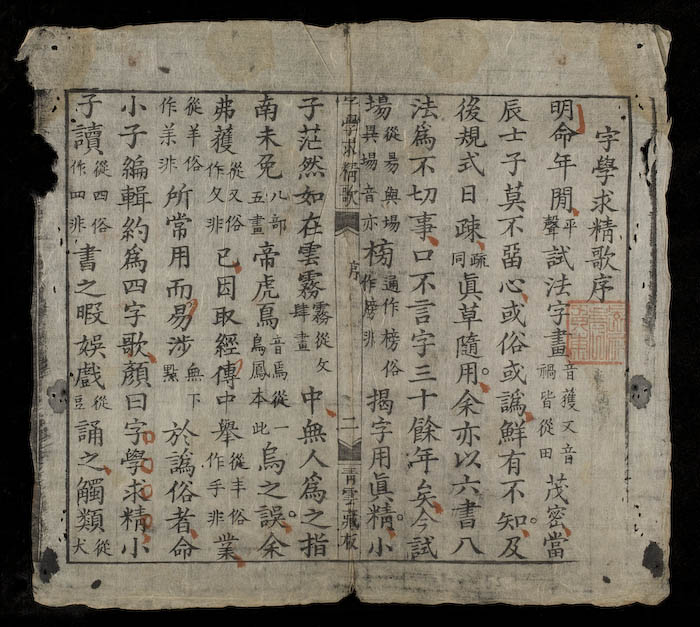 字學求精歌序
明命年閒平聲試法字畫音獲又音禍皆從田茂密當
辰士子莫不畱心或俗或譌鮮有不知及
後規式日疎疏同眞草隨用余亦以六書八
法爲不切事口不言字三十餘年矣今試
場從易與場異場音亦榜通作榜俗作牓非揭字用眞精小
字學求精歌 序 二 青雲藏板
子茫然如在雲霧霧從攵肆畫中無人爲之指
南未免八部五畫帝虎鳥音焉從一鳥鳳本此烏之誤余
弗獲從又俗作攵非已因取經傳中舉從丰俗作手非業
從羊俗作𦍌非所常用而易涉無下點於譌俗者命
小子編輯約爲四字歌顏曰字學求精小
子讀從四俗作罒非書之暇娛戲從豆誦之觸類從犬